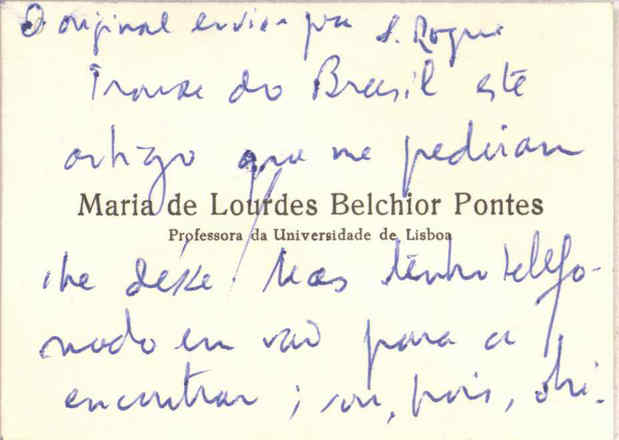 O original enviar para S. Roque
Trouxe do Brasil este
artigo que me pediram
Maria de Lourdes Belchior Pontes
Professora da Universidade de Lisboa
lhe desse. Mas tenho telefo-
nado em vão para a
encontrar; sou, pois, obri-